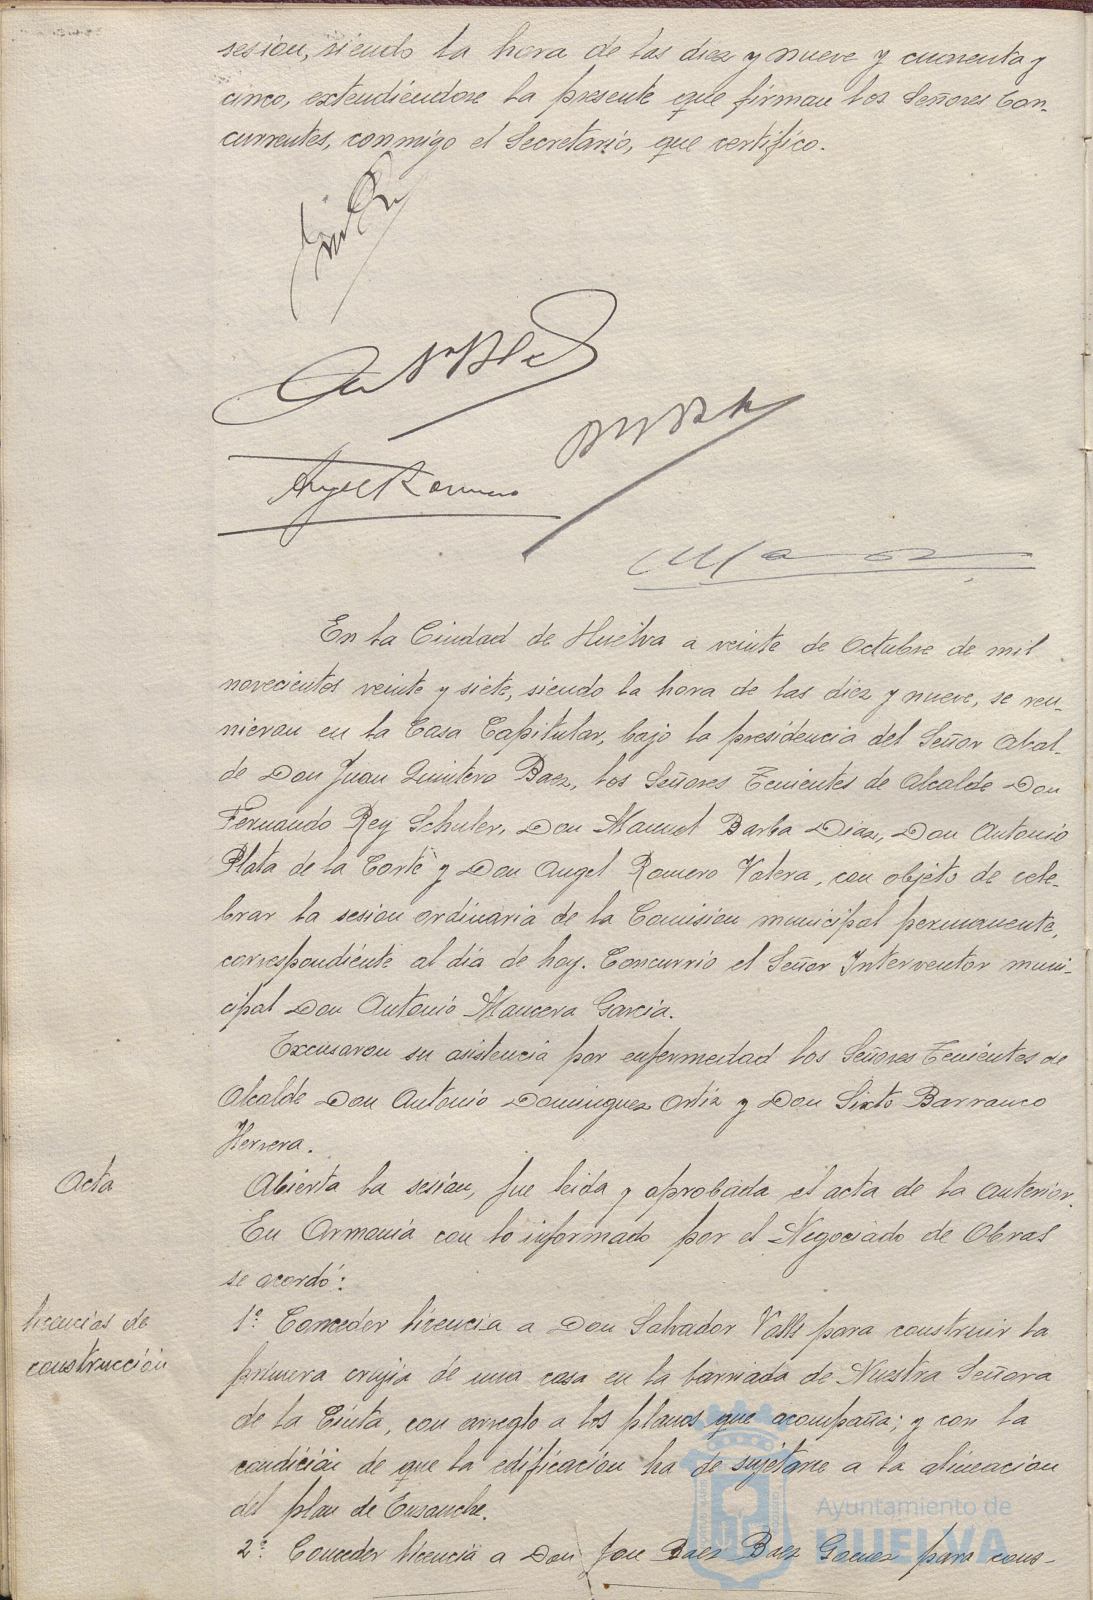 sesion, siendo la hora de las diez y nueve y cuarenta y
cinco, extendiendose la presente que firman los Señores Con-
currentes, conmigo el Secretario, que certifico.
Angel Romero
En la Ciudad de Huelva a veinte de Octubre de mil
novecientos veinte y siete, siendo la hora de las diez y nueve, se reu-
nieron en la Casa Capitular, bajo la presidencia del Señor Alcal-
de Don Juan Quintero Baez, los Señores Tenientes de Alcalde Don
Fernando Rey Schuler, Don Manuel Barba Diaz, Don Antonio
Plata de la Corte y Don Angel Romero Valera, con objeto de cele-
brar la sesion ordinaria de la Comision municipal permanente,
correspondiente al día de hoy. Concurrio el Señor Interventor muni-
cipal Don Antonio Mancera Garcia.
Excusaron su asistencia por enfermedad los Señores Tenientes de
Alcalde Don Antonio Dominguez Ortiz y Don Sixto Barranco
Herrera.
Acta
Abierta la sesion, fue leida y aprobada el acta de la anterior.
En Armonia con lo informado por el Negociado de Obras
se acordó:
licencias de
construcción
1º Conceder licencia a Don Salvador Valls para construir la
primera crujia de una casa en la barriada de Nuestra Señora
de la Cinta, con arreglo a los planos que acompaña; y con la
condición de que la edificación ha de sujetarse a la alineacion
del plan de Ensanche.
2º Conceder licencia a Don Jose Baez Gomez para cons-
Ayuntamiento de
HUELVA